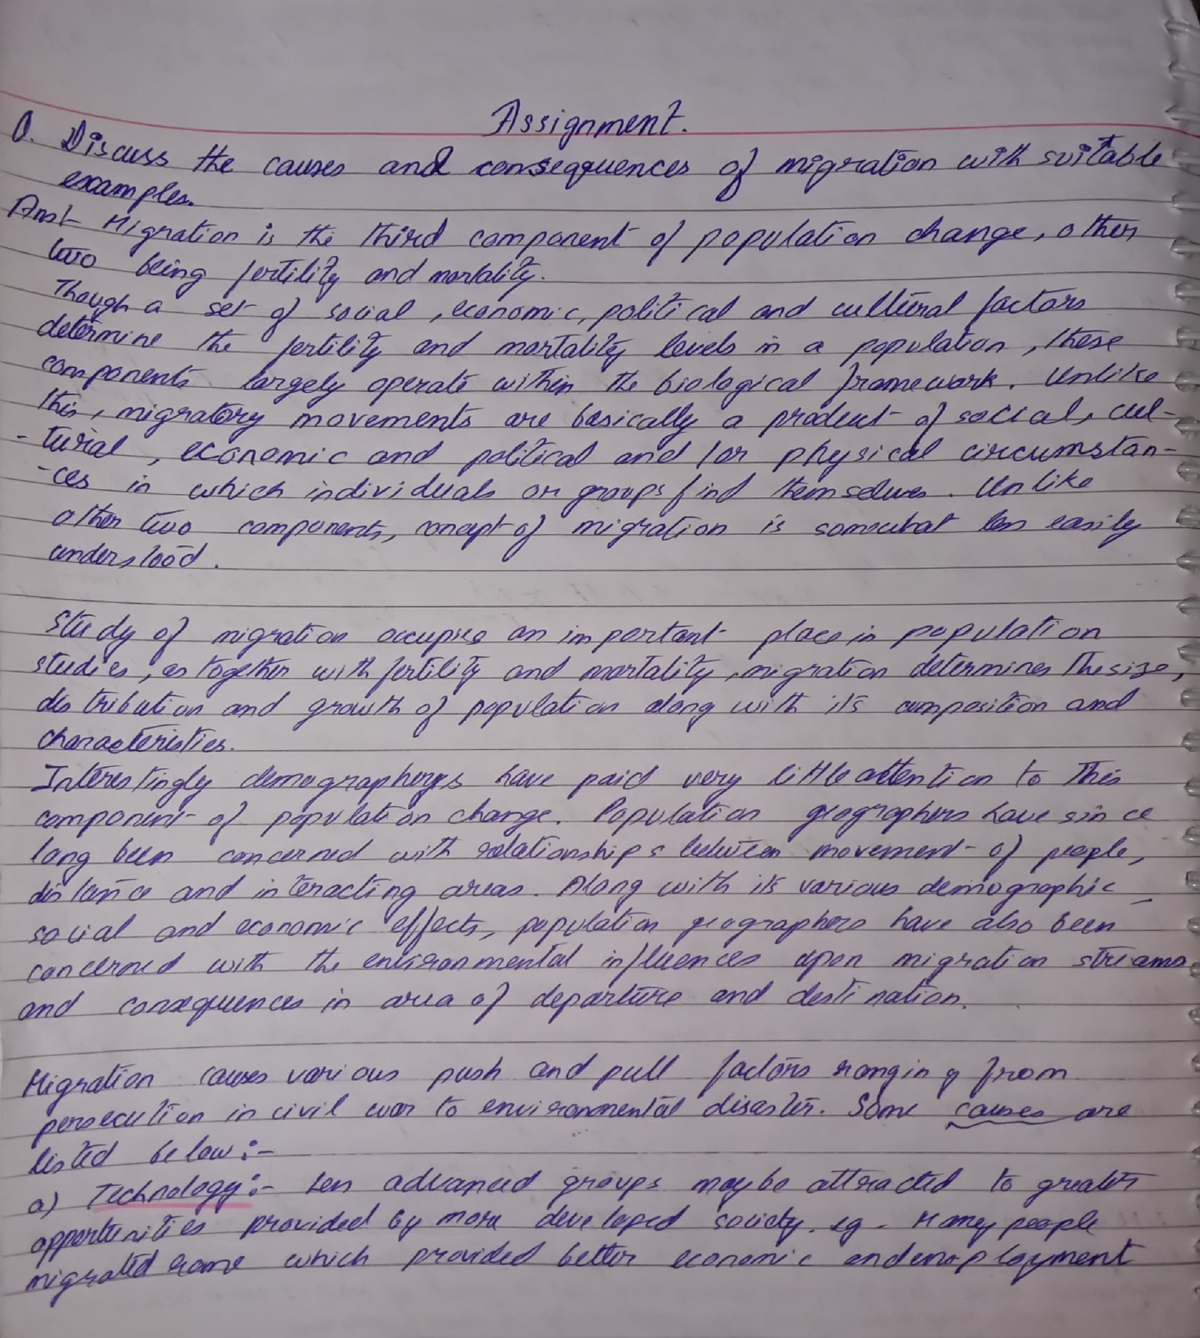 Assignment.
Q. Discuss the causes and consequences of migration with suitable
examples.
Ans:- Migration is the third component of population change, other
two being fertility and mortality.
Though a set of social, economic, political and cultural factors
determine the fertility and mortality levels in a population, these
components largely operate within the biological framework. Unlike
this, migratory movements are basically a product of social, cul-
-tural, economic and political and/or physical circumstan-
-ces in which individuals or groups find themselves. Unlike
other two components, concept of migration is somewhat less easily
understood.
Study of migration occupies an important place in population
studies, as together with fertility and mortality, migration determines the size,
distribution and growth of population along with its composition and
characteristics.
Interestingly demographers have paid very little attention to this
component of population change. Population geographers have since
long been concerned with relationships between movement of people,
distance and interacting areas. Along with its various demographic,
social and economic effects, population geographers have also been
concerned with the environmental influences upon migration streams
and consequences in area of departure and destination.
Migration causes various push and pull factors ranging from
persecution in civil war to environmental disaster. Some causes are
listed below:-
a) Technology:- Less advanced groups may be attracted to greater
opportunities provided by more developed society. eg - Many people
migrated which provided better economic and employment